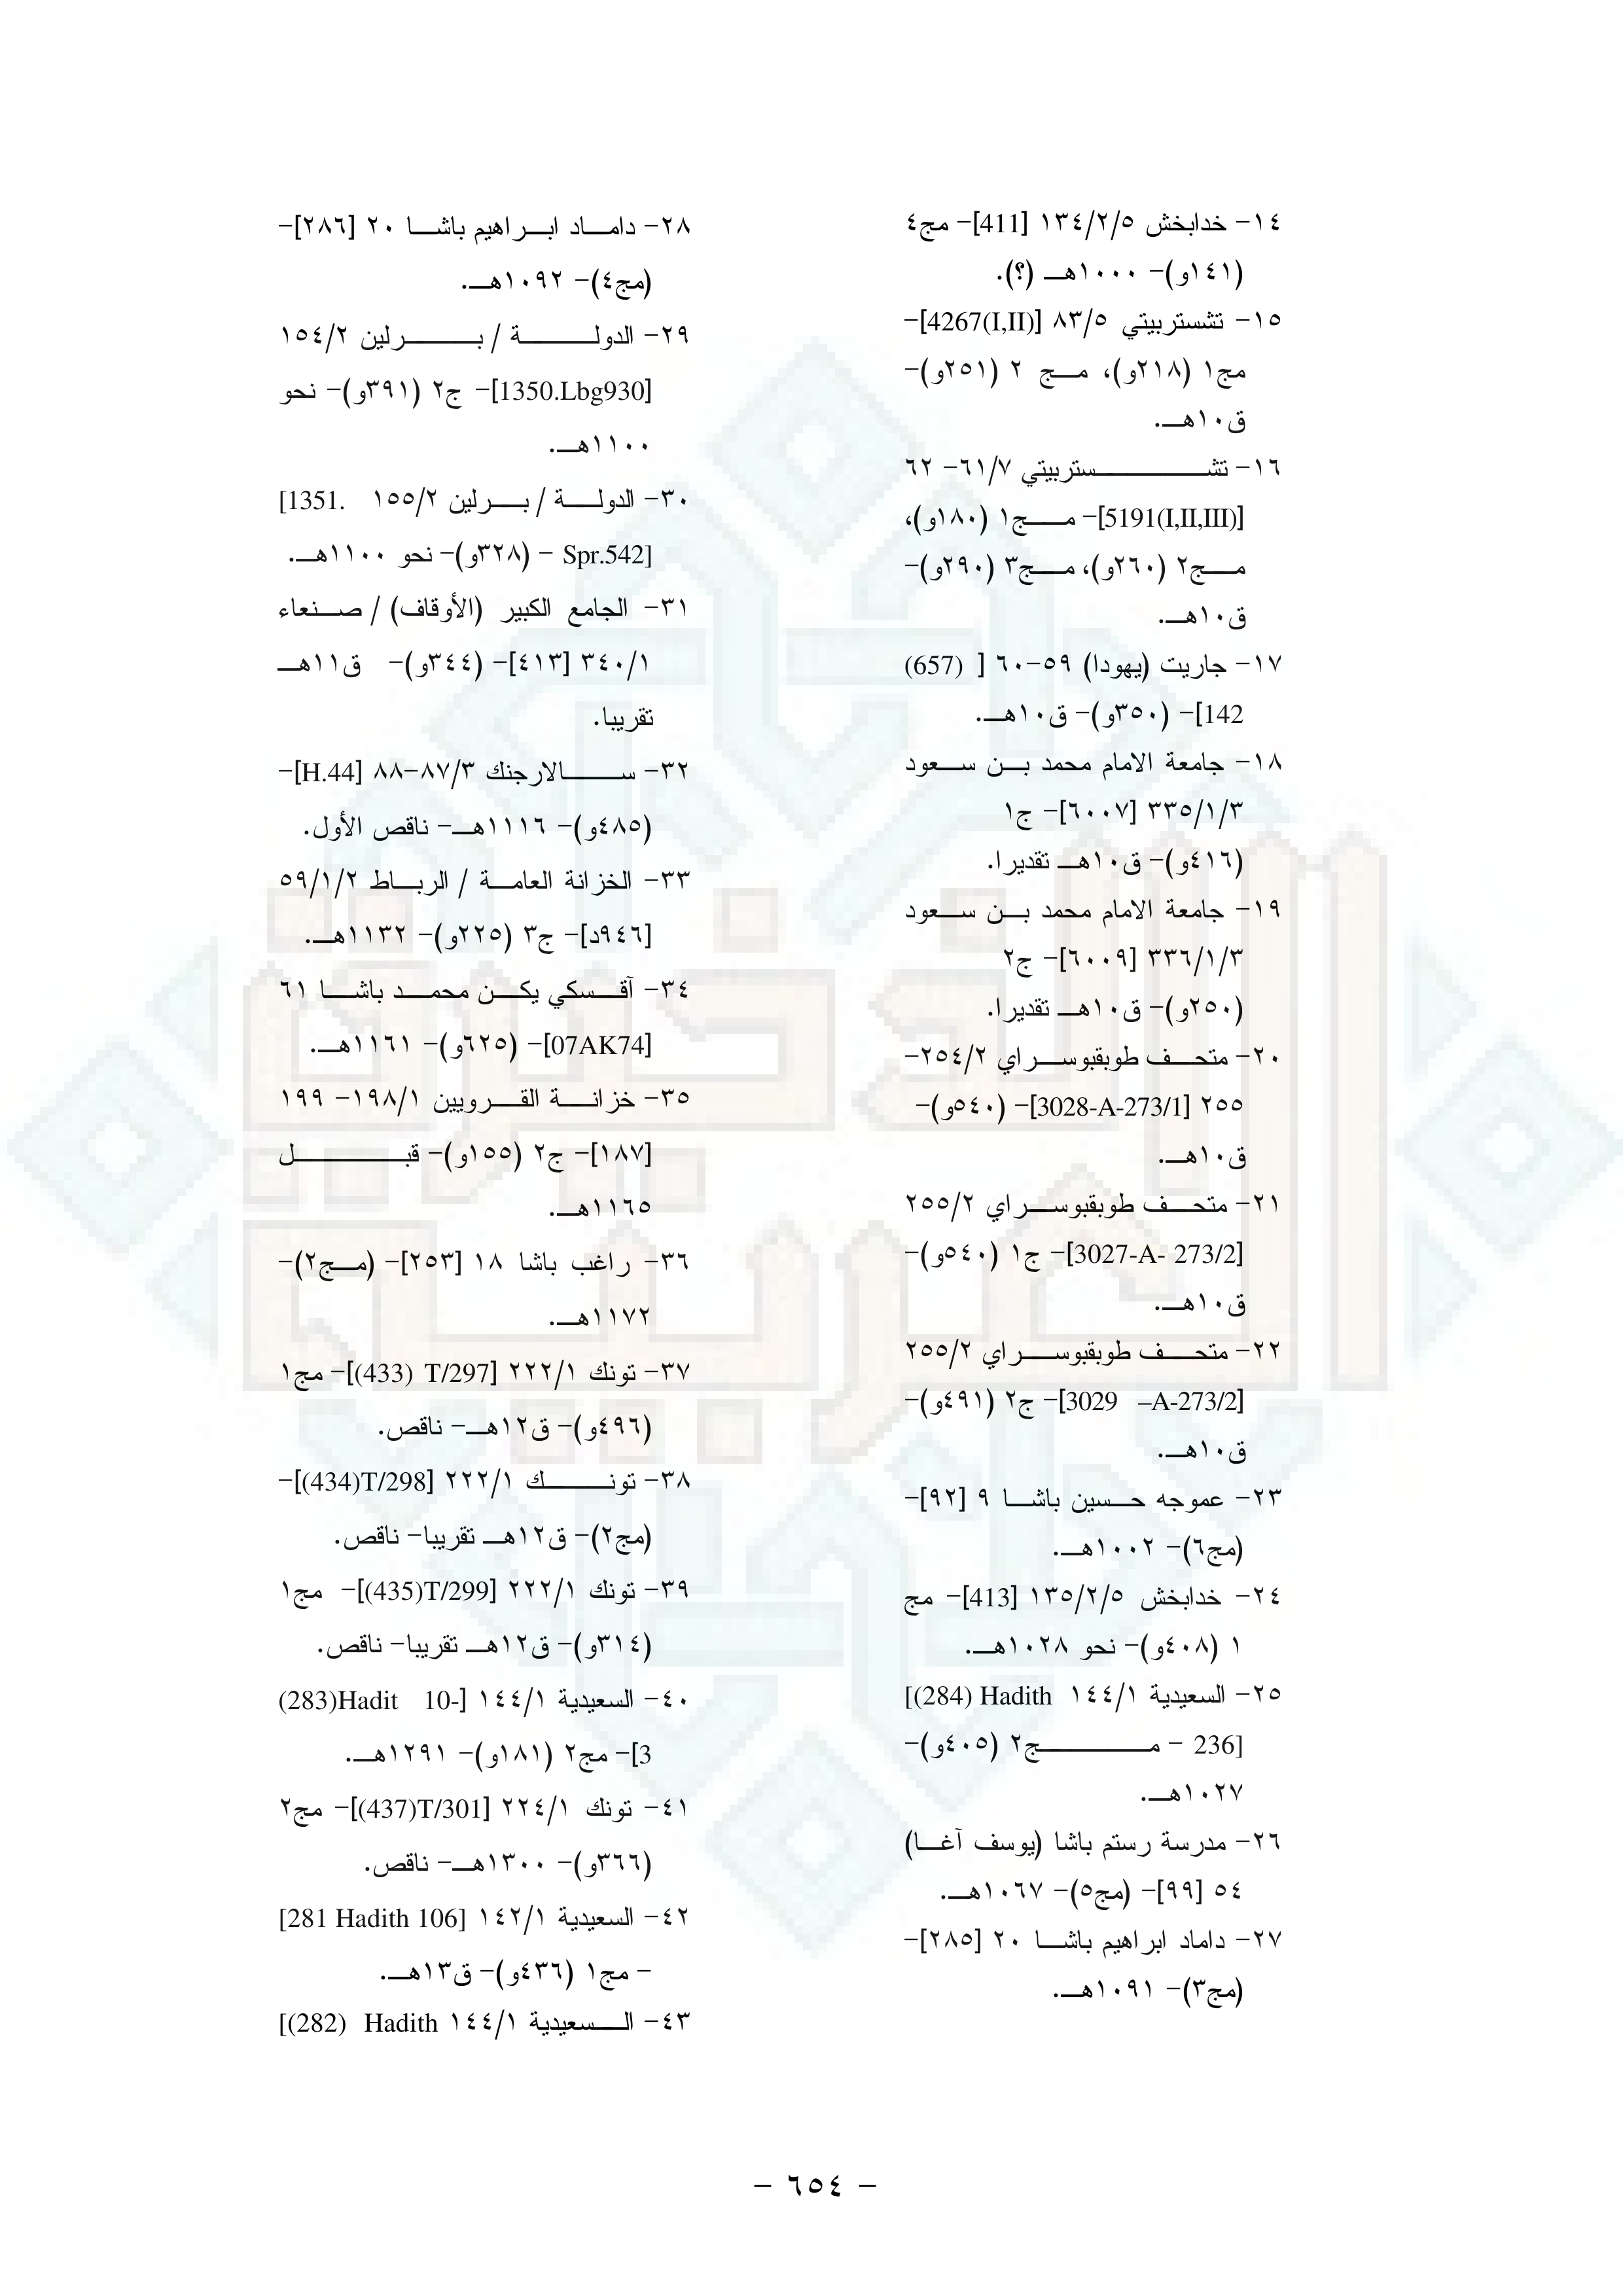 ١٤- خدابخش ١٣٤/٢/٥ [411]- مج٤
(١٤١و)- ١٠٠٠هـ (؟).
١٥- تشستربيتي ٨٣/٥ [4267(I,II)]-
مج١ (٢١٨و)، مج ٢ (٢٥١و)-
ق١٠هـ.
١٦- تشستربيتي ٦١/٧- ٦٢
[5191(I,II,III)]- مج١ (١٨٠و)،
مج٢ (٢٦٠و)، مج٣ (٢٩٠و)-
ق١٠هـ.
١٧- جاريت (يهودا) ٥٩-٦٠ [ (657)
142]- (٣٥٠و)- ق١٠هـ.
١٨- جامعة الامام محمد بن سعود
٣٣٥/١/٣ [٦٠٠٧]- ج١
(٤١٦و)- ق١٠هـ تقديرا.
١٩- جامعة الامام محمد بن سعود
٣٣٦/١/٣ [٦٠٠٩]- ج٢
(٢٥٠و)- ق١٠هـ تقديرا.
٢٠- متحف طوبقبوسراي ٢٥٤/٢-
٢٥٥ [3028-A-273/1]- (٥٤٠و)-
ق١٠هـ.
٢١- متحف طوبقبوسراي ٢٥٥/٢
[3027-A- 273/2]- ج١ (٥٤٠و)-
ق١٠هـ.
٢٢- متحف طوبقبوسراي ٢٥٥/٢
[3029 –A-273/2]- ج٢ (٤٩١و)-
ق١٠هـ.
٢٣- عموجه حسين باشا ٩ [٩٢]-
(مج٦)- ١٠٠٢هـ.
٢٤- خدابخش ١٣٥/٢/٥ [413]- مج
١ (٤٠٨و)- نحو ١٠٢٨هـ.
٢٥- السعيدية ١٤٤/١ [(284) Hadith
236] - مج٢ (٤٠٥و)-
١٠٢٧هـ.
٢٦- مدرسة رستم باشا (يوسف آغا)
٥٤ [٩٩]- (مج٥)- ١٠٦٧هـ.
٢٧- داماد ابراهيم باشا ٢٠ [٢٨٥]-
(مج٣)- ١٠٩١هـ.
٢٨- داماد ابراهيم باشا ٢٠ [٢٨٦]-
(مج٤)- ١٠٩٢هـ.
٢٩- الدولة / برلين ١٥٤/٢
[1350.Lbg930]- ج٢ (٣٩١و)- نحو
١١٠٠هـ.
٣٠- الدولة / برلين ١٥٥/٢ [1351.
Spr.542] - (٣٢٨و)- نحو ١١٠٠هـ.
٣١- الجامع الكبير (الأوقاف) / صنعاء
٣٤٠/١ [٤١٣]- (٣٤٤و)- ق١١هـ
تقريبا.
٣٢- سالارجنك ٨٧/٣-٨٨ [H.44]-
(٤٨٥و)- ١١١٦هـ- ناقص الأول.
٣٣- الخزانة العامة / الرباط ٥٩/١/٢
[٩٤٦د]- ج٣ (٢٢٥و)- ١١٣٢هـ.
٣٤- آقسكي يكن محمد باشا ٦١
[07AK74]- (٦٢٥و)- ١١٦١هـ.
٣٥- خزانة القرويين ١٩٨/١- ١٩٩
[١٨٧]- ج٢ (١٥٥و)- قبل
١١٦٥هـ.
٣٦- راغب باشا ١٨ [٢٥٣]- (مج٢)-
١١٧٢هـ.
٣٧- تونك ٢٢٢/١ [(433) T/297]- مج١
(٤٩٦و)- ق١٢هـ- ناقص.
٣٨- تونك ٢٢٢/١ [(434)T/298]-
(مج٢)- ق١٢هـ تقريبا- ناقص.
٣٩- تونك ٢٢٢/١ [(435)T/299]- مج١
(٣١٤و)- ق١٢هـ تقريبا- ناقص.
٤٠- السعيدية ١٤٤/١ [(283)Hadit 10-
3]- مج٢ (١٨١و)- ١٢٩١هـ.
٤١- تونك ٢٢٤/١ [(437)T/301]- مج٢
(٣٦٦و)- ١٣٠٠هـ- ناقص.
٤٢- السعيدية ١٤٢/١ [281 Hadith 106]
- مج١ (٤٣٦و)- ق١٣هـ.
٤٣- السعيدية ١٤٤/١ [(282) Hadith
- ٦٥٤ -
الذخيرة
العربية